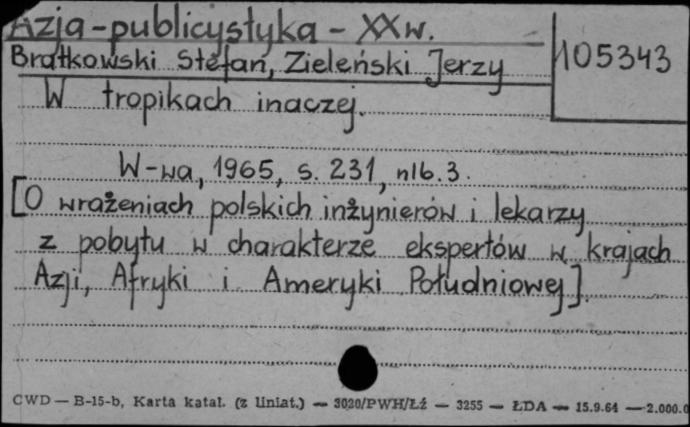 Azja - publicystyka - XX w.
Bratkowski Stefan, Zieleński Jerzy
105343
W tropikach inaczej.
W-wa, 1965, s. 231, nlb. 3.
[O wrażeniach polskich inżynierów i lekarzy
z pobytu w charakterze ekspertów w krajach
Azji, Afryki i Ameryki Południowej].
CWD — B-15-b, Karta katal. (z liniat.) — 3020/PWH/Łź — 3255 — ŁDA — 15.9.64 — 2.000.0